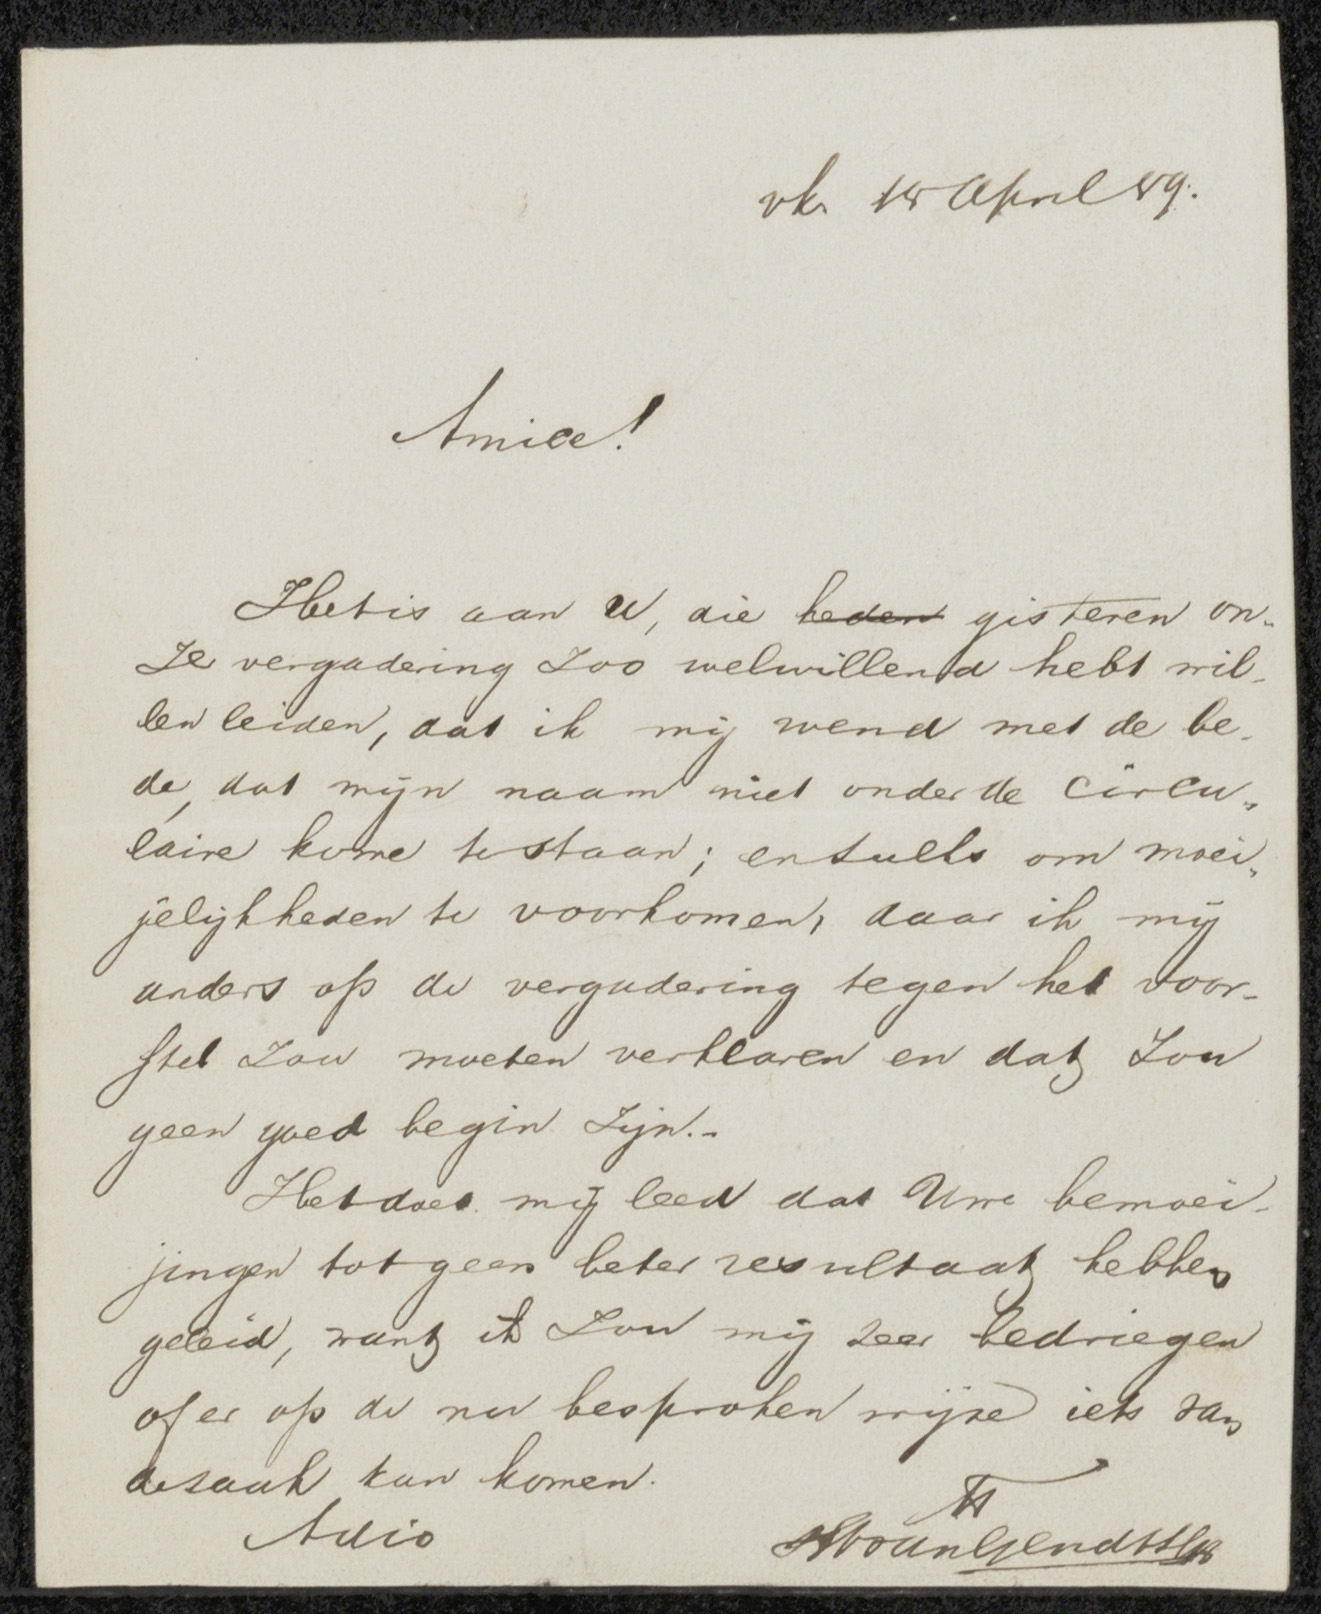 vh. 18 April 89.
Amice!
Het is aan U, die heden gisteren on-
ze vergadering zoo welwillend hebt wil-
len leiden, dat ik mij wend met de be-
de, dat mijn naam niet onder de circu-
laire kome te staan; en sulks om moei-
jelijkheden te voorkomen, daar ik mij
anders op de vergadering tegen het voor-
stel zou moeten verklaren en dat zou
geen goed begin zijn.-
Het doet mij leed dat Uwe bemoei-
jingen tot geen beter resultaat hebben
geleid, want ik zou mij zeer bedriegen
of er op de nu besproken wijze iets van
de zaak kan komen.
Adio
tt